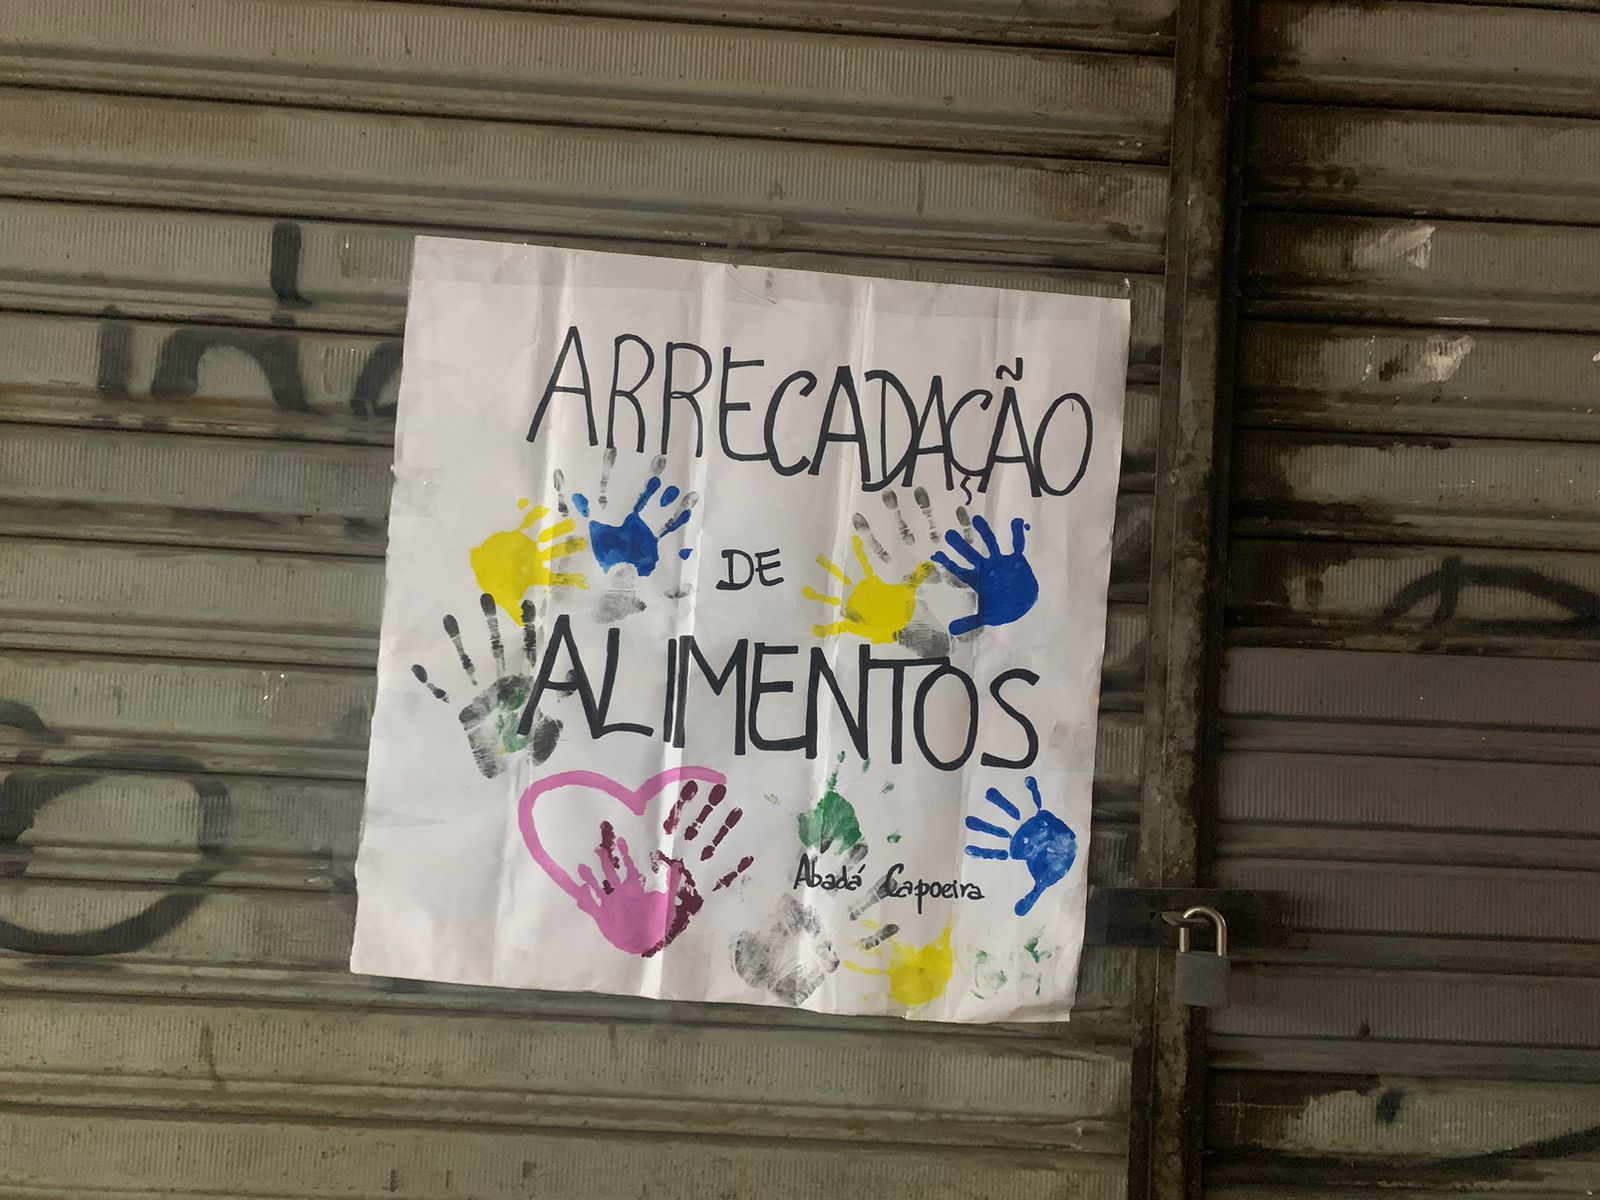 ARRECADAÇÃO
DE
ALIMENTOS
Abadá Capoeira